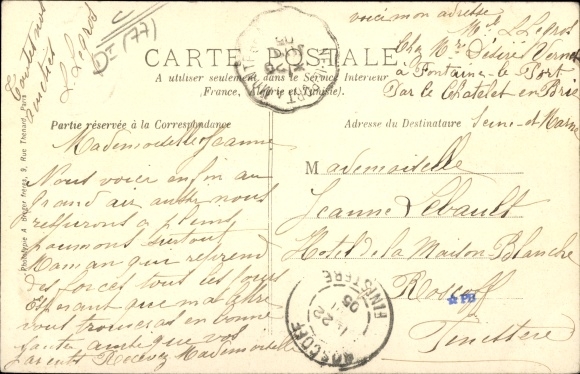 voici mon adresse
Mlle L Legros
Chez Mr Désiré Vernet
à Fontaine-le Port
Par le Chatelet en Brie
Seine-et-Marne
CARTE POSTALE
A utiliser seulement dans le Service Intérieur
(France, Algérie et Tunisie).
Partie réservée à la Correspondance
Adresse du Destinataire
Toutes nos
amitiés
L. Legros
Dt (77)
Mademoiselle Jeanne
Nous voici enfin au
grand air, aussi nous
respirons a pleins
poumons surtout
Maman qui reprend
des forces tous les jours
Espérant que ma lettre
vous trouvera en bonne
santé, ainsi que vos
parents Recevez Mademoiselle
Mademoiselle
Jeanne Lebault
Hotel de la Maison Blanche
Roscoff
Finistère
ROSCOFF
22
05
FINISTERE
PB
Phototypie A. Breger frères, 9, Rue Thénard, Paris